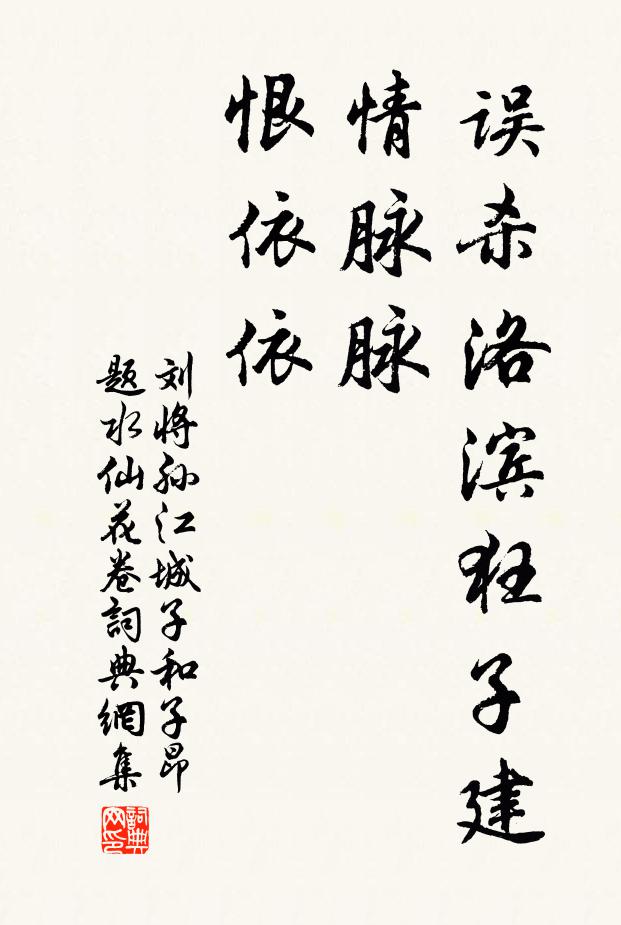 误杀洛滨狂子建
情脉脉
恨依依
刘将孙江城子和子昂
题水仙花卷詞典網集
詞典网印